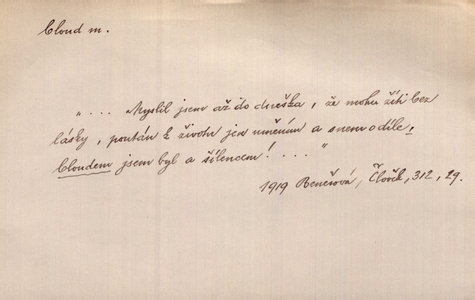 Cloud m.
„ . . . . Myslil jsem až do dneška, že mohu žíti bez
lásky, poután k životu jen uměním a snem o díle,
Cloudem jsem byl a šílencem! . . . . “
1919 Benešová, Člověk, 312, 29.